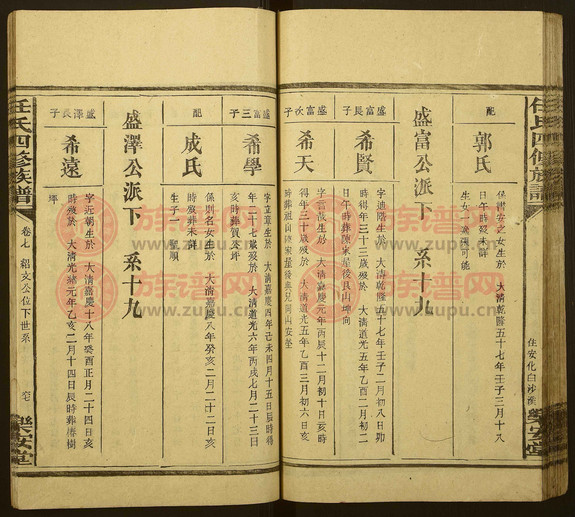 任氏四修族譜
住安化白沙
樂安堂
配
郭氏
日午時殁未詳
生女一
大清乾隆五十七年壬子三月十八
盛富公派下 系十九
盛富長子
希賢
字油階生於 大清乾隆五十七年壬子二月初八日卯
時得年三十三歲殁於 大清道光五年乙酉二月初二
日午時葬陳家屋後艮山坤向
盛富次子
希天
字言哉生於 大清嘉慶元年丙辰十二月初十日亥時
得年三十歲殁於 大清道光五年乙酉三月初六日亥
時葬祖山陳家屋後與兄同山安塋
盛富三子
希學
字立章生於 大清嘉慶四年己未四月十五日辰時
年二十七歲殁於 大清道光六年丙戌七月二十三日
亥時葬賀家坪
配
成氏
係則名女生於 大清嘉慶八年癸亥二月二十二日亥
時殁葬未詳
生子一 聖順
盛澤公派下 系十九
盛澤長子
希遠
字近朝生於 大清嘉慶十八年癸酉正月二十四日亥
時殁於 大清光緒元年乙亥二月十四日辰時葬椿樹
坪
任氏四修族譜
卷七 紹文公位下世系
樂安堂
族譜网
www.zupu.cn